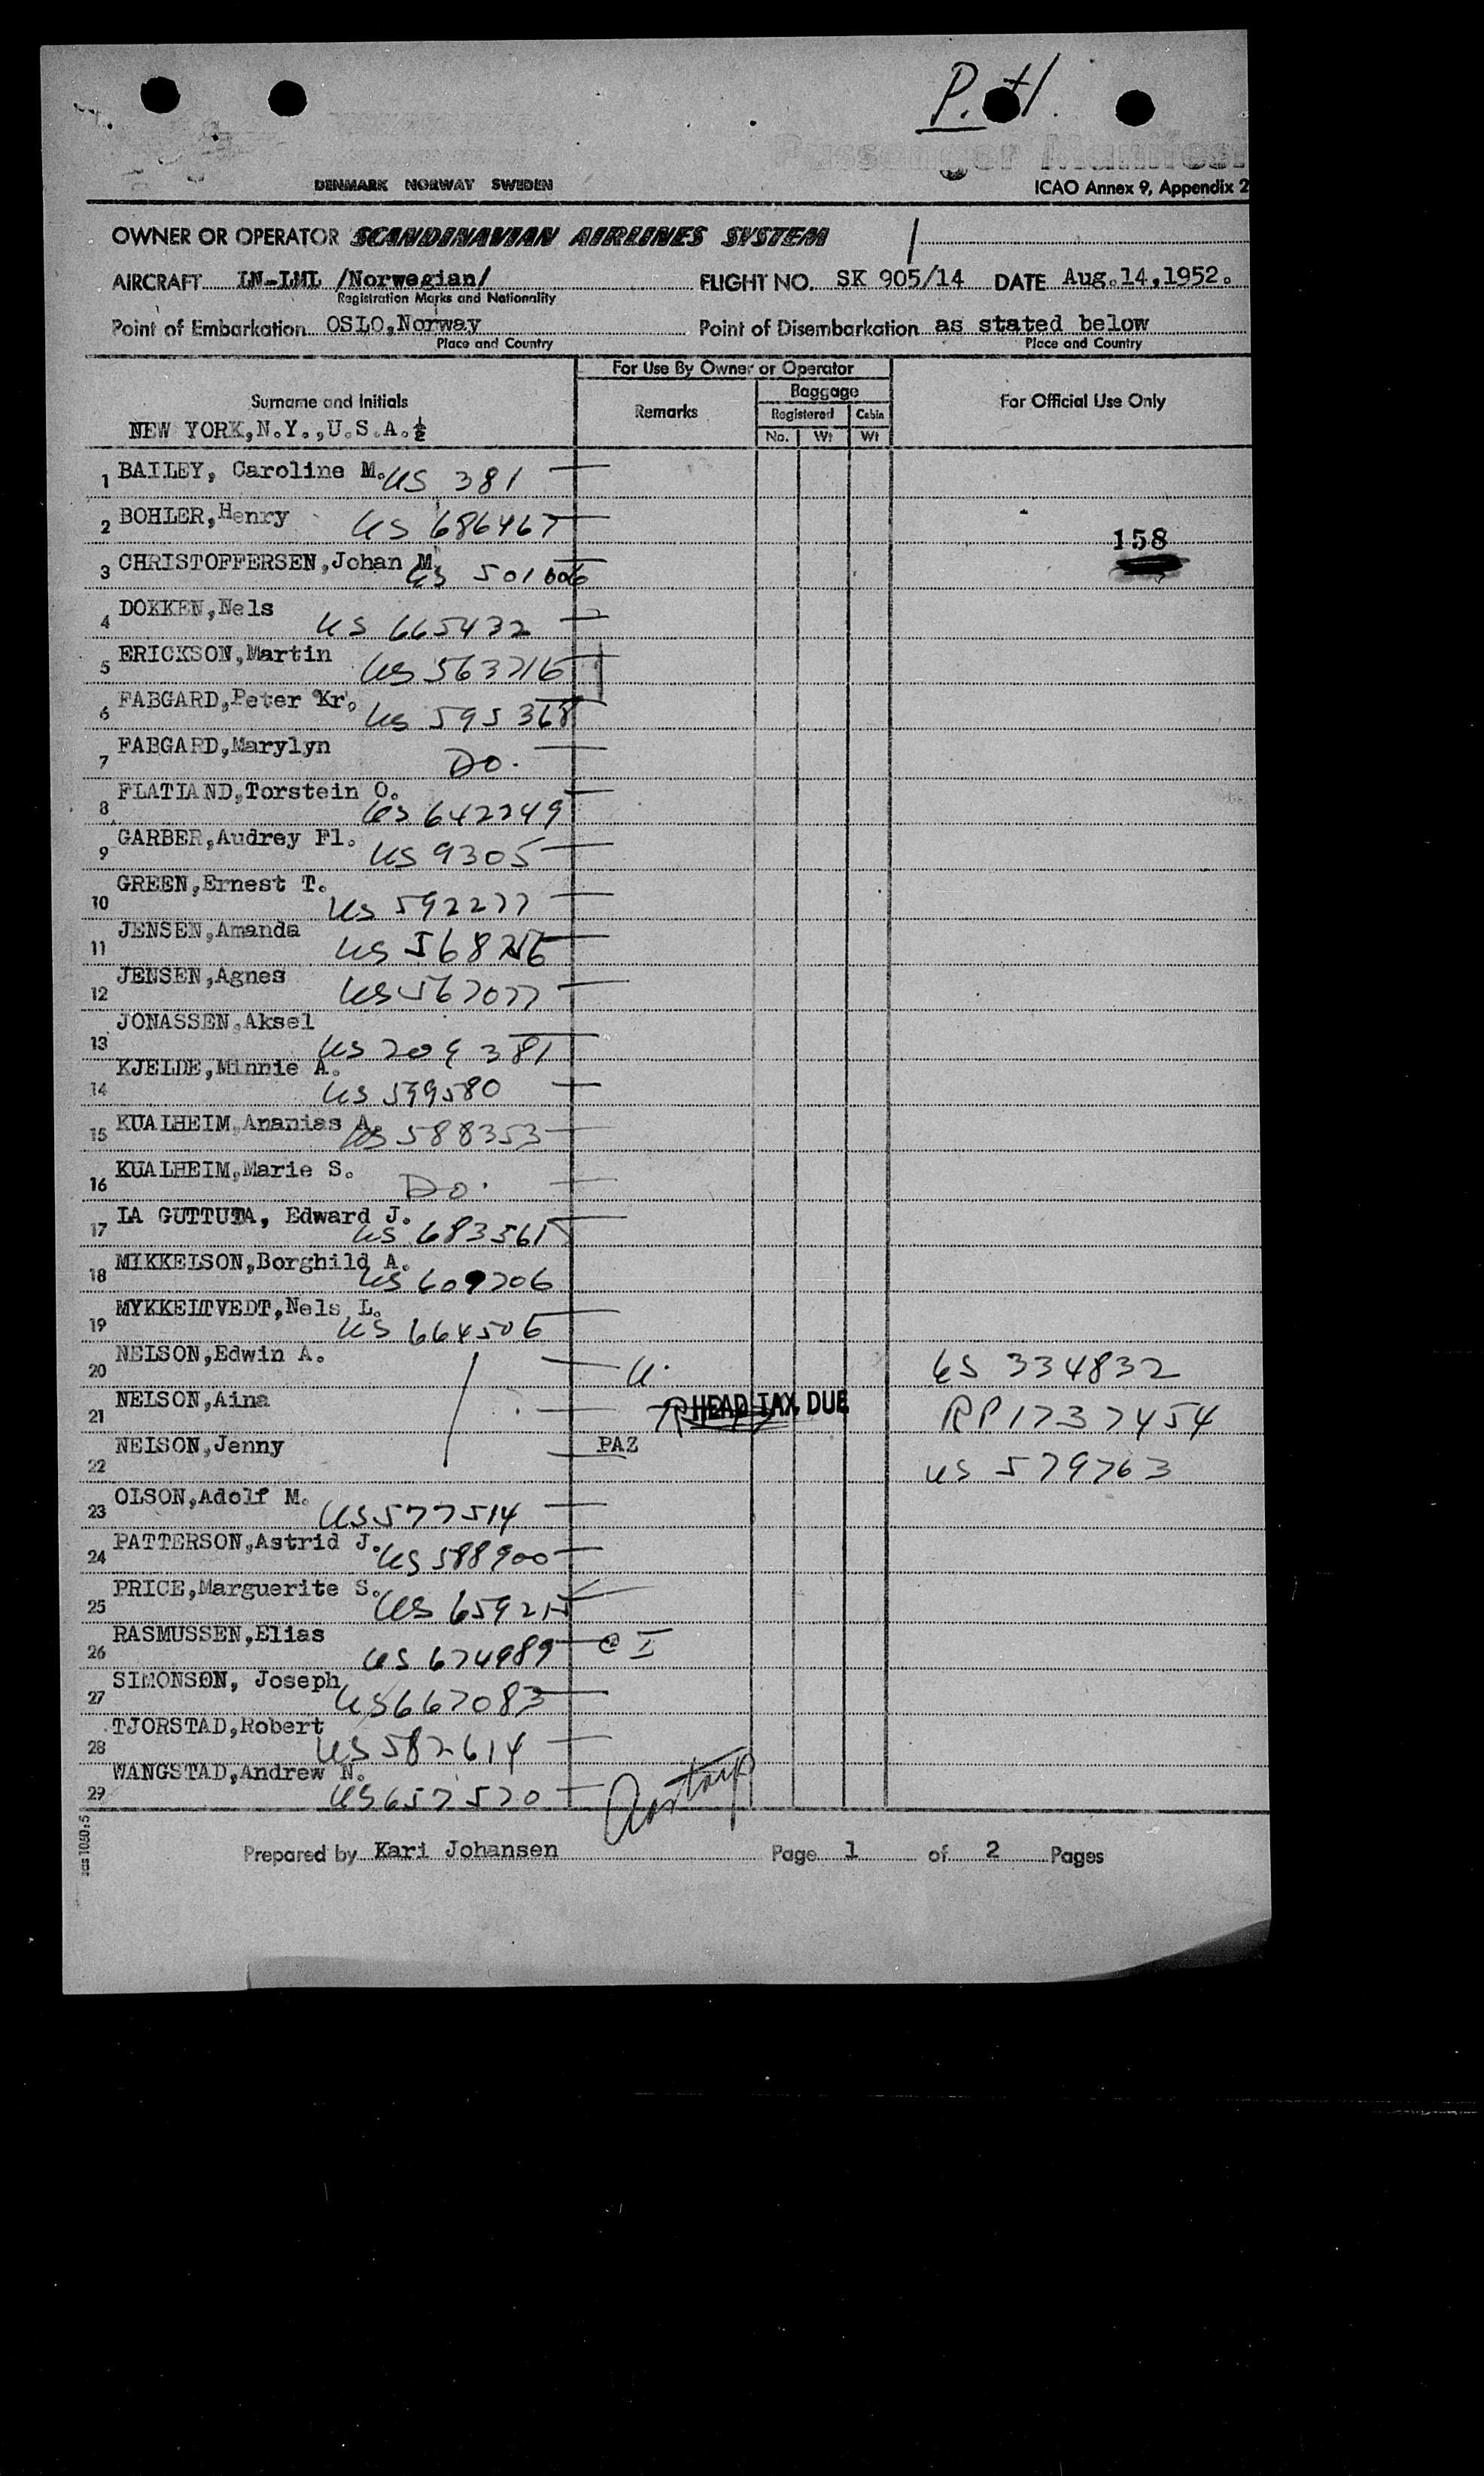 P.H.
Passenger Manifest
DENMARK NORWAY SWEDEN
ICAO Annex 9, Appendix 2
OWNER OR OPERATOR SCANDINAVIAN AIRLINES SYSTEM
AIRCRAFT LN-LML /Norwegian/ FLIGHT NO. SK 905/14 DATE Aug.14,1952.
Registration Marks and Nationality
Point of Embarkation OSLO,Norway Point of Disembarkation as stated below
Place and Country Place and Country
For Use By Owner or Operator
Surname and Initials Remarks Baggage For Official Use Only
Registered Cabin
NEW YORK,N.Y.,U.S.A.
No. Wt Wt
1 BAILEY, Caroline M. US 381
2 BOHLER,Henry US 686467
158
3 CHRISTOFFERSEN,Johan M. US 501006
4 DOKKEN,Nels US 665432
5 ERICKSON,Martin US 563716
6 FABGARD,Peter Kr. US 595368
7 FABGARD,Marylyn Do.
8 FLATLAND,Torstein O. US 642749
9 GARBER,Audrey Fl. US 9305
10 GREEN,Ernest T. US 592277
11 JENSEN,Amanda US
12 JENSEN,Agnes US 567077
13 JONASSEN,Aksel US
14 KJELDE,Minnie A. US 599580
15 KUALHEIM,Ananias A. US 588353
16 KUALHEIM,Marie S. Do.
17 LA GUTTUTA, Edward J. US 683561
18 MIKKELSON,Borghild A. US 609706
19 MYKKELTVEDT,Nels L. US 664506
20 NELSON,Edwin A. U. US 334832
21 NELSON,Aina HEAD TAX DUE RP1737454
22 NELSON,Jenny PAZ US 579763
23 OLSON,Adolf M. US577514
24 PATTERSON,Astrid J. US 588900
25 PRICE,Marguerite S. US 659215
26 RASMUSSEN,Elias US 674989 @ I
27 SIMONSON, Joseph US667083
28 TJORSTAD,Robert US 582614
29 WANGSTAD,Andrew N. US657570
sas 1080:5
Prepared by Kari Johansen Page 1 of 2 Pages